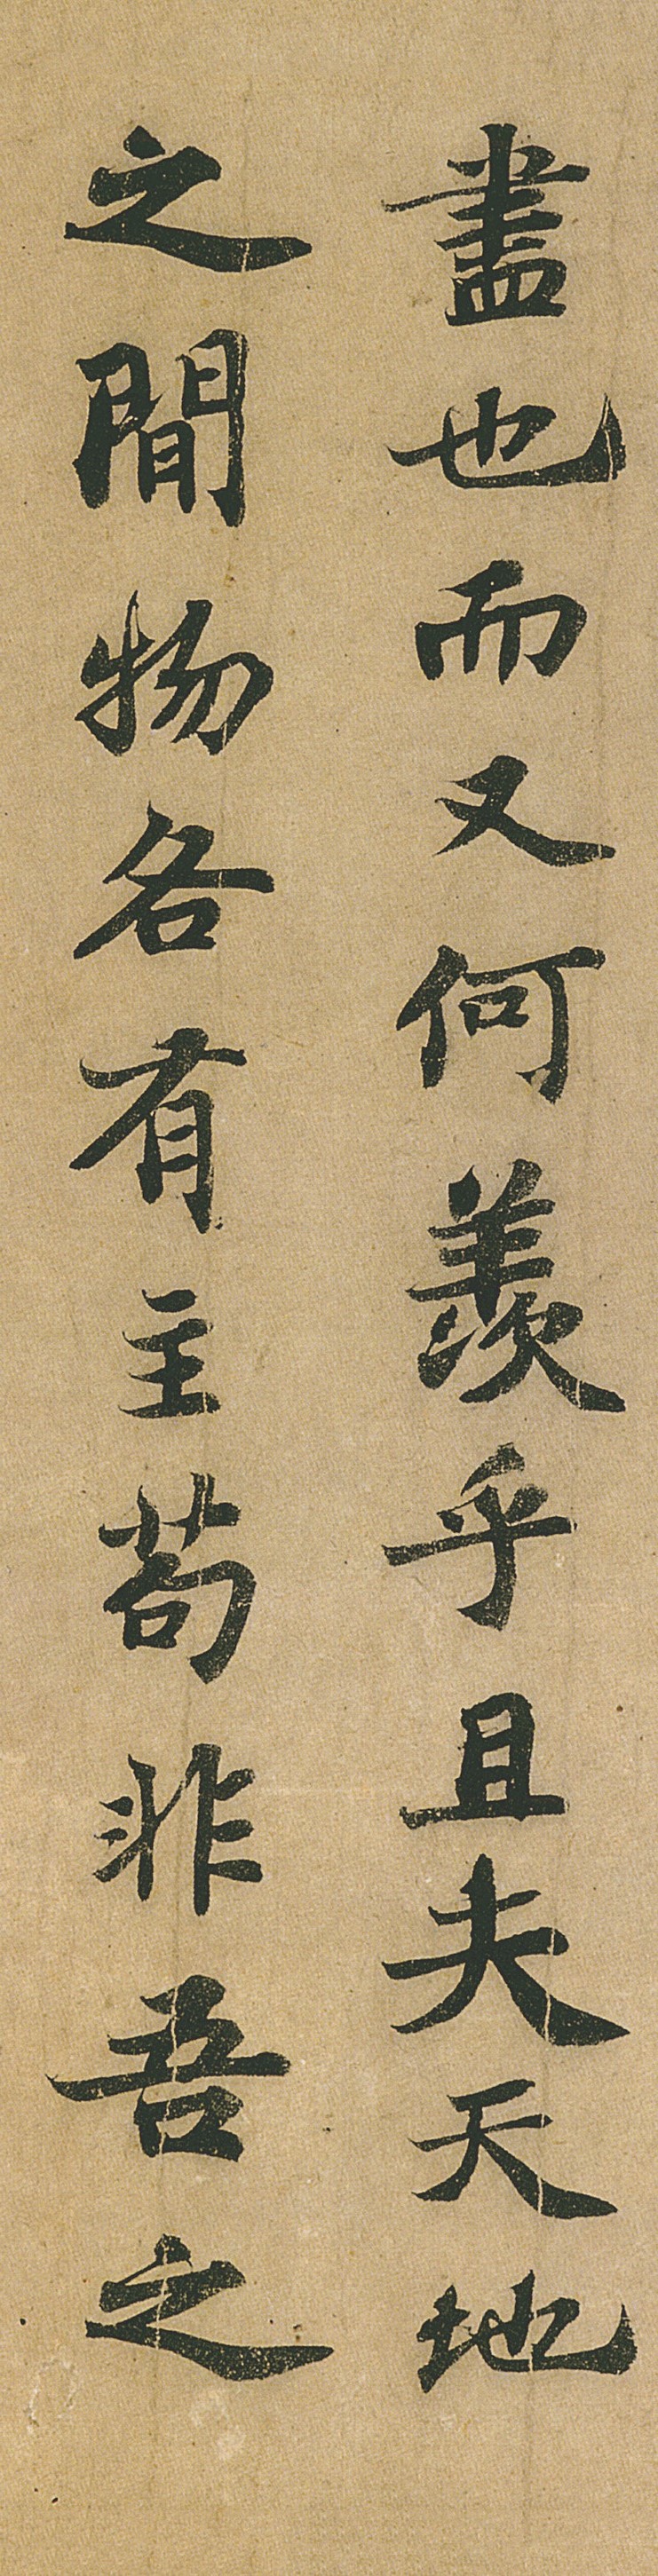 盡也而又何羨乎且夫天地
之間物各有主苟非吾之